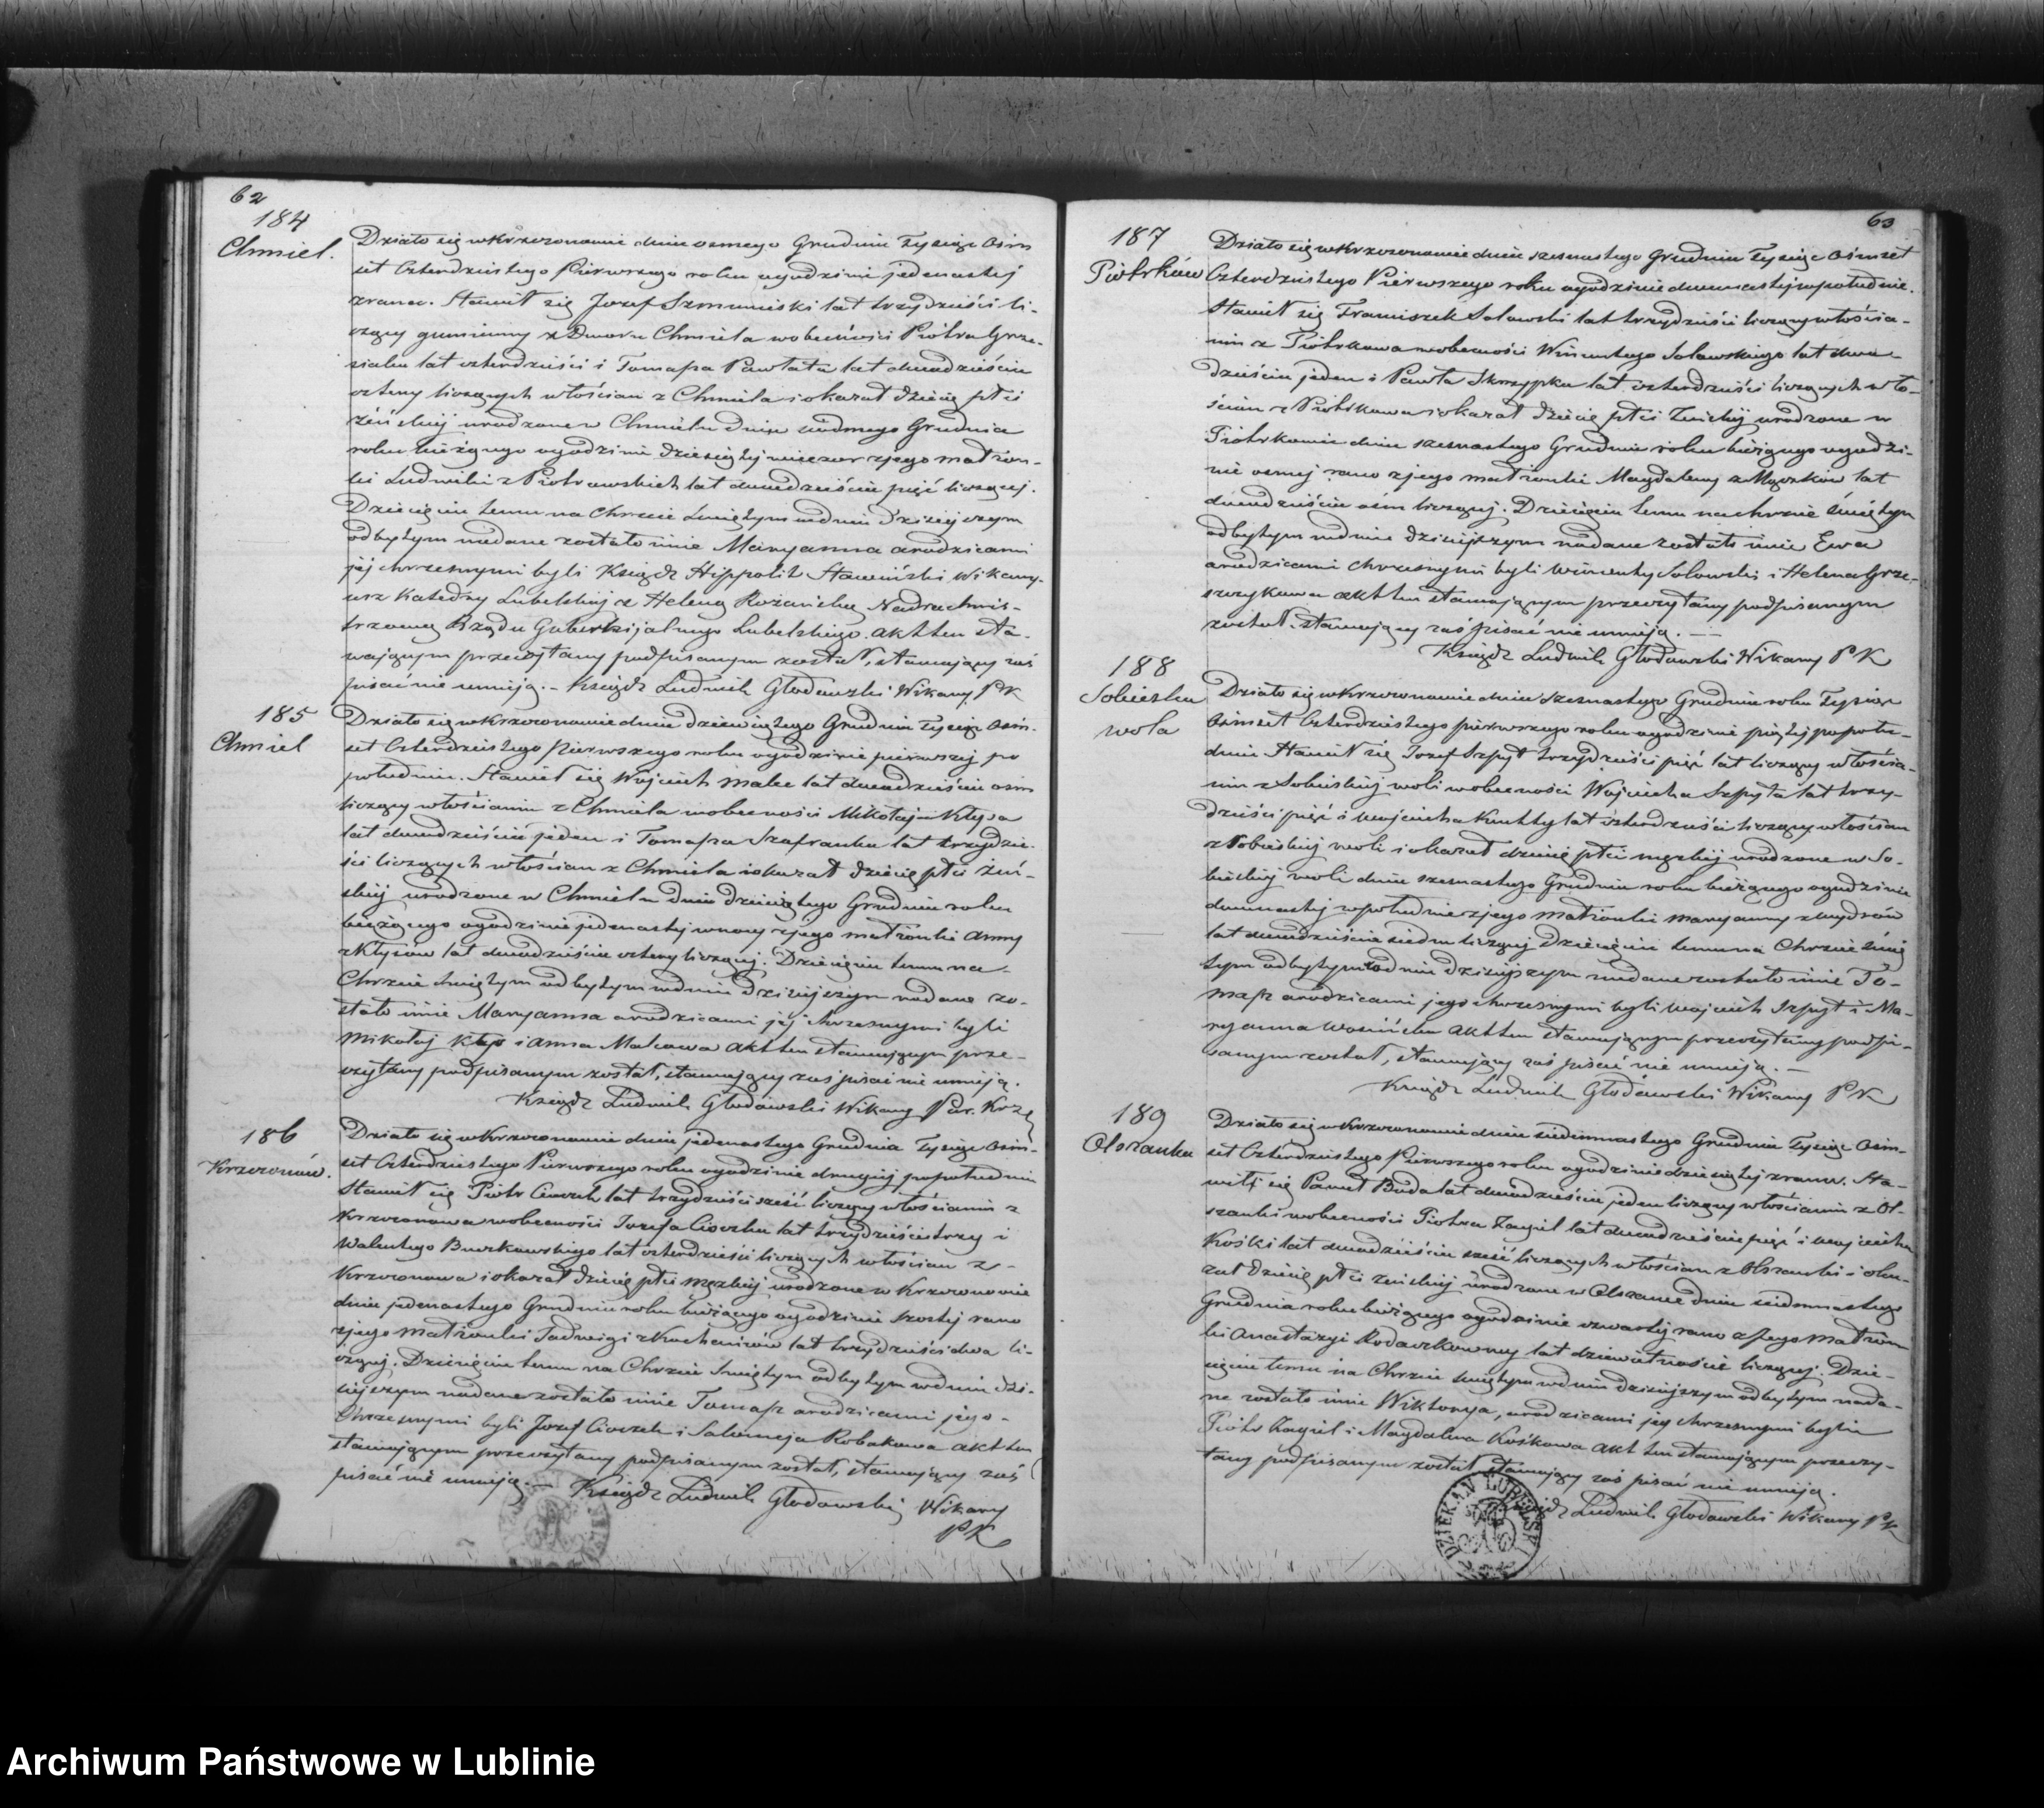 62
184
Chmiel.
Działo się w Krzczonowie dnia osmego Grudnia Tysiąc Ośm
set Czterdziestego Pierwszego roku o godzinie jedenastej
zrana. Stawił się Jozef Szmuniski lat trzydzieści li-
czący gumienny z Dworu Chmiela w obecności Piotra Grze-
siaka lat czterdzieści i Tomasza Pawlata lat dwadzieścia
cztery liczących włościan z Chmiela i okazał dziecię płci
żeńskiej urodzone w Chmielu dnia siodmego Grudnia
roku bieżącego o godzinie dziesiątej wieczor z jego małżon-
ki Ludwiki z Piotrowskich lat dwadzieścia pięć liczącej.
Dziecięciu temu na Chrzcie Świętym w dniu dzisiejszym
odbytym nadane zostało imie Maryanna a rodzicami
jej chrzesnymi byli Ksiądz Hippolit Stawiński Wikary-
usz Katedry Lubelskiej z Heleną Rożańską Nadrachmis-
trzową Rządu Gubernijalnego Lubelskiego. Akt ten sta-
wającym przeczytany podpisanym został, stawający zaś
pisać nie umieją. - Ksiądz Ludwik Głodowski Wikary PK
185
Chmiel
Działo się w Krzczonowie dnia dziewiątego Grudnia Tysiąc Ośm-
set Czterdziestego Pierwszego roku o godzinie pierwszej po
południu. Stawił się Wojciech Malec lat dwadzieścia ośm
liczący włościanin z Chmiela w obecności Mikołaja Kłysa
lat dwadzieścia jeden i Tomasza Szafranka lat trzydzie-
ści liczących włościan z Chmiela i okazał dziecię płci żeń-
skiej urodzone w Chmielu dnia dziewiątego Grudnia roku
bieżącego o godzinie jedenastej w nocy z jego małżonki Anny
z Kłysów lat dwadzieścia cztery liczącej. Dziecięciu temu na-
Chrzcie Świętym odbytym w dniu dzisiejszym nadane zo-
stało imie Maryanna a rodzicami jej chrzesnymi byli
Mikołaj Kłys i Anna Malcowa Akt ten stawającym prze-
czytany podpisanym został, stawający zaś pisać nie umieją.
Ksiądz Ludwik Głodowski Wikary Par. Krzę
186
Krzczonów.
Działo się w Krzczonowie dnia jedenastego Grudnia Tysiąc Ośm-
set Czterdziestego Pierwszego roku o godzinie drugiej popołudniu
Stawił się Piotr Cioczek lat trzydzieści sześć liczący włościanin z
Krzczonowa w obecności Jozefa Cioczka lat trzydzieści trzy i
Walentego Buczkowskiego lat czterdzieści liczących włościan z-
Krzczonowa i okazał dziecię płci męzkiej urodzone w Krzczonowie
dnia jedenastego Grudnia roku bieżącego o godzinie szostej rano
z jego małżonki Jadwigi z Kochaniów lat trzydzieści dwa li-
czącej. Dziecięciu temu na Chrzcie Świętym odbytym w dniu dzi-
siejszym nadane zostało imie Tomasz a rodzicami jego-
Chrzesnymi byli Jozef Cioczek i Salomeja Robakowa Akt ten
stawającym przeczytany podpisanym został, stawający zaś
pisać nie umieją. - Ksiądz Ludwik Głodowski Wikary
PK
63
187
Piotrków
Działo się w Krzczonowie dnia szesnastego Grudnia Tysiąc Ośmset
Czterdziestego Pierwszego roku o godzinie dwunastej w południe.
Stawił się Franciszek Solowski lat trzydzieści liczący włościa-
nin z Piotrkowa w obecności Wincentego Solowskiego lat dwa-
dzieścia jeden i Pawła Skrzypka lat czterdzieści liczących wło-
ścian z Piotrkowa i okazał dziecię płci żeńskiej urodzone w
Piotrkowie dnia szesnastego Grudnia roku bieżącego o godzi-
nie osmej rano z jego małżonki Magdaleny z lat
dwadzieścia ośm liczącej. Dziecięciu temu na chrzcie świętym
odbytym w dniu dzisiejszym nadane zostało imie Ewa
a rodzicami chrzesnymi byli Wincenty Solowski i Helena Grze-
szczykowa akt ten stawającym przeczytany podpisanym
został. stawający zaś pisać nie umieją. -
Ksiądz Ludwik Głodowski Wikary PK
188
Sobieska
wola
Działo się w Krzczonowie dnia szesnastego Grudnia roku Tysiąc
Ośmset Czterdziestego pierwszego roku o godzinie piątej popołu-
dniu Stawił się Jozef Szpyt trzydzieści pięć lat liczący włościa-
nin z Sobieskiej woli w obecności Wojciecha Szpyta lat trzy-
dzieści pięć i Wojciecha lat czterdzieści liczących włościan
z Sobieskiej woli i okazał dziecię płci męzkiej urodzone w So-
bieskiej woli dnia szesnastego Grudnia roku bieżącego o godzinie
dwunastej w południe z jego małżonki Maryanny z Wydrów
lat dwadzieścia siedm liczącej Dziecięciu temu na Chrzcie Świę
tym odbytym w dniu dzisiejszym nadane zostało imie To-
masz a rodzicami jego chrzesnymi byli Wojciech Szpyt i Ma-
ryanna Wosińska Akt ten stawającym przeczytany podpi-
sanym został, stawający zaś pisać nie umieją. -
Ksiądz Ludwik Głodowski Wikary PK
189
Olszanka
Działo się w Krzczonowie dnia siedemnastego Grudnia Tysiąc Ośm-
set Czterdziestego Pierwszego roku o godzinie dziesiątej zrana. Sta-
wił się Paweł Buda lat dwadzieścia jeden liczący włościanin z Ol-
szanki w obecności Piotra Żagiel lat dwadzieścia pięć i Wojciecha
Kośki lat dwadzieścia sześć liczących włościan z Olszanki i oka-
zał dziecię płci żeńskiej urodzone w Olszance dnia siedemnastego
Grudnia roku bieżącego o godzinie czwartej rano z Jego małżon
ki Anastazyi Rodaczkowny lat dziewietnaście liczącej. Dzie-
cięciu temu na Chrzcie Świętym w dniu dzisiejszym odbytym nada-
ne zostało imie Wiktorya, a rodzicami jej chrzesnymi byli
Piotr Żagiel i Magdalena Kośkowa Akt ten stawającym przeczy-
tany podpisanym został stawający zaś pisać nie umieją.
Ksiądz Ludwik Głodowski Wikary PK
DZIEKAN LUBELSKI
Archiwum Państwowe w Lublinie